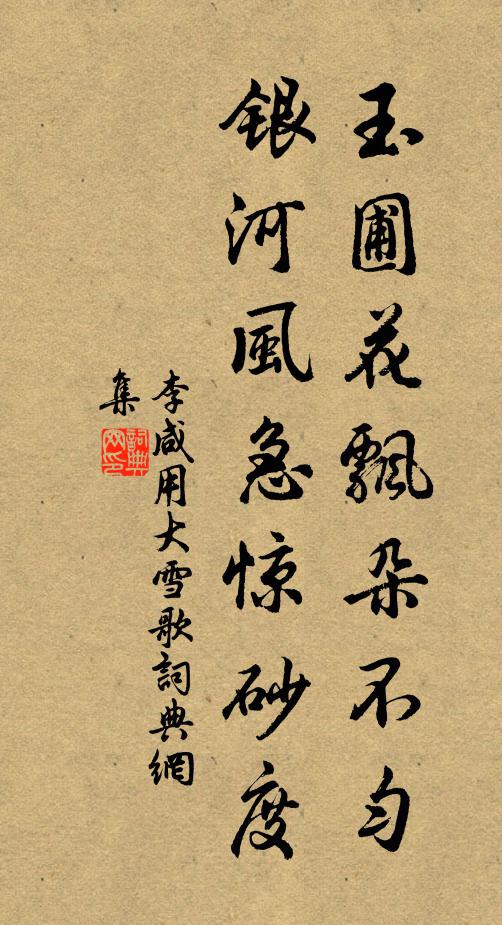 玉圃花飄朵不匀
銀河風急惊砂度
李咸用大雪歌詞典網
集
詞典
网印